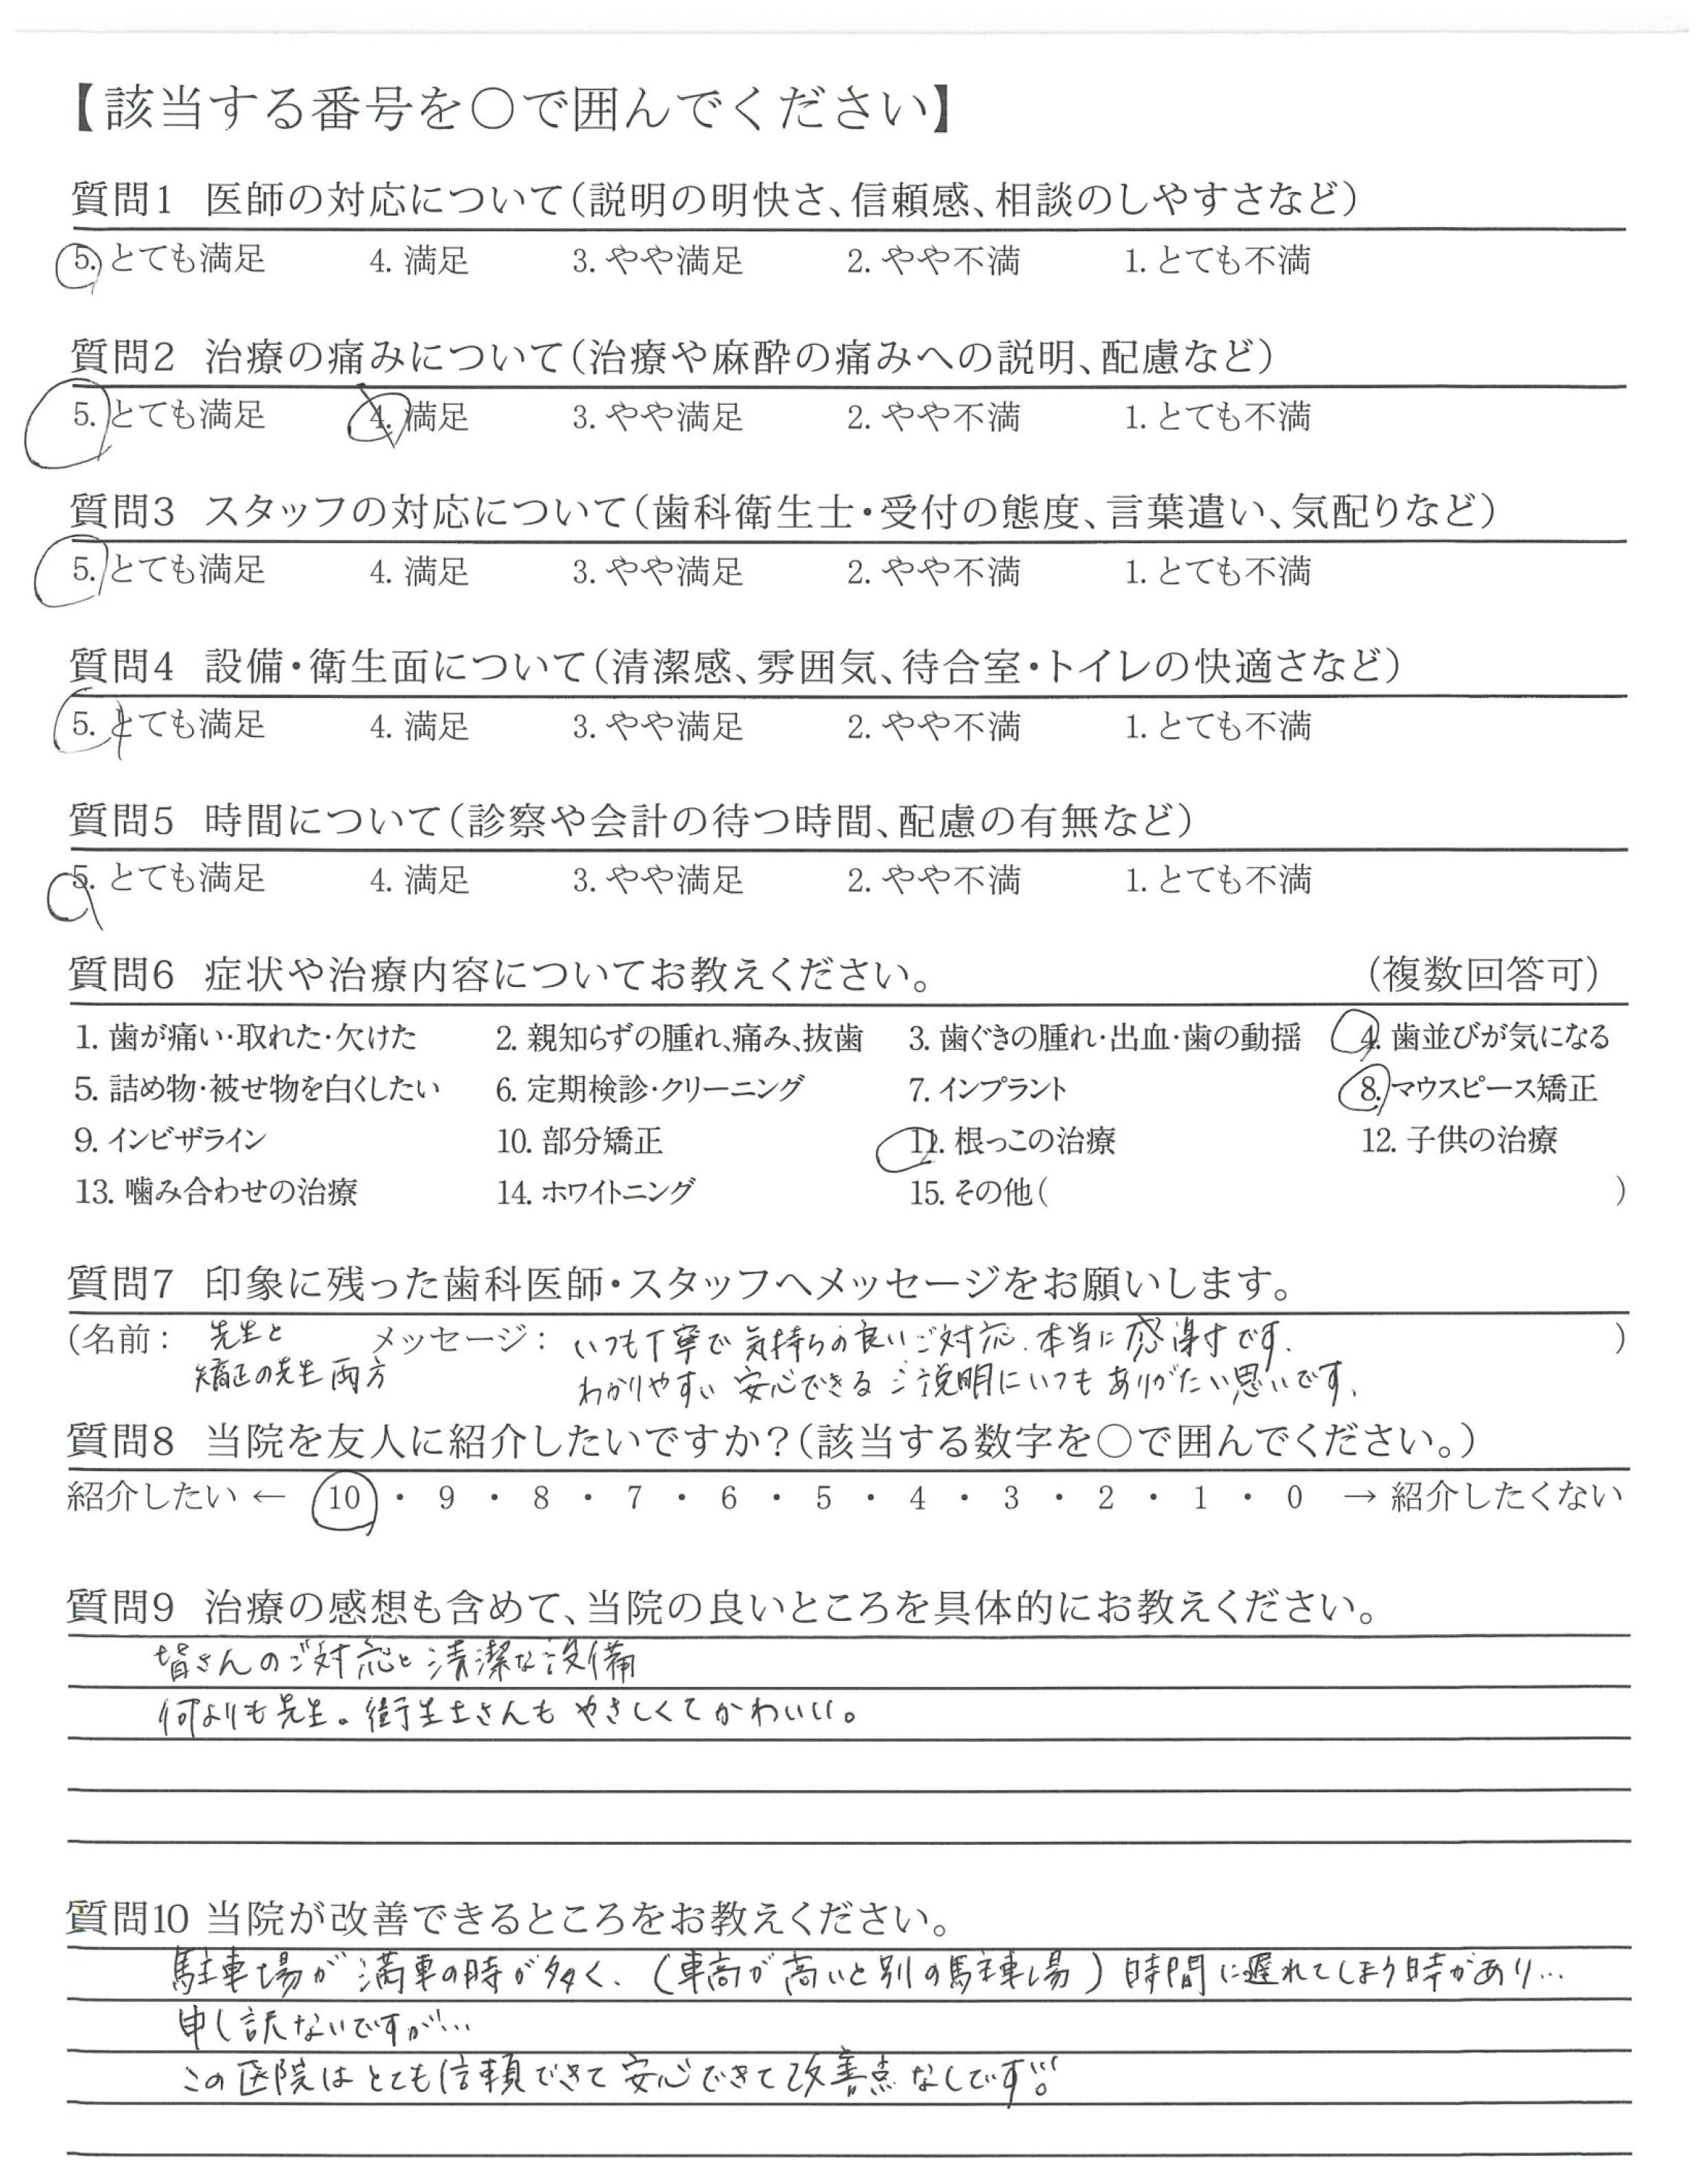 【該当する番号を○で囲んでください】
質問1 医師の対応について(説明の明快さ、信頼感、相談のしやすさなど)
5. とても満足 4. 満足 3. やや満足 2. やや不満 1. とても不満
質問2 治療の痛みについて(治療や麻酔の痛みへの説明、配慮など)
5. とても満足 4. 満足 3. やや満足 2. やや不満 1. とても不満
質問3 スタッフの対応について(歯科衛生士・受付の態度、言葉遣い、気配りなど)
5. とても満足 4. 満足 3. やや満足 2. やや不満 1. とても不満
質問4 設備・衛生面について(清潔感、雰囲気、待合室・トイレの快適さなど)
5. とても満足 4. 満足 3. やや満足 2. やや不満 1. とても不満
質問5 時間について(診察や会計の待つ時間、配慮の有無など)
5. とても満足 4. 満足 3. やや満足 2. やや不満 1. とても不満
質問6 症状や治療内容についてお教えください。 (複数回答可)
1. 歯が痛い・取れた・欠けた 2. 親知らずの腫れ、痛み、抜歯 3. 歯ぐきの腫れ・出血・歯の動揺 4. 歯並びが気になる
5. 詰め物・被せ物を白くしたい 6. 定期検診・クリーニング 7. インプラント 8. マウスピース矯正
9. インビザライン 10. 部分矯正 11. 根っこの治療 12. 子供の治療
13. 噛み合わせの治療 14. ホワイトニング 15. その他( )
質問7 印象に残った歯科医師・スタッフへメッセージをお願いします。
(名前: 先生と メッセージ: いつも丁寧で気持ちの良いご対応、本当に感謝です。 )
矯正の先生両方 わかりやすい安心できるご説明にいつもありがたい思いです。
質問8 当院を友人に紹介したいですか?(該当する数字を○で囲んでください。)
紹介したい ← 10 ・ 9 ・ 8 ・ 7 ・ 6 ・ 5 ・ 4 ・ 3 ・ 2 ・ 1 ・ 0 → 紹介したくない
質問9 治療の感想も含めて、当院の良いところを具体的にお教えください。
皆さんのご対応と清潔な設備
何よりも先生。衛生士さんもやさしくてかわいい。
質問10 当院が改善できるところをお教えください。
駐車場が満車の時が多く、(車高が高いと別の駐車場)時間に遅れてしまう時があり…
申し訳ないですが…
この医院はとても信頼できて安心できて改善点なしです!!